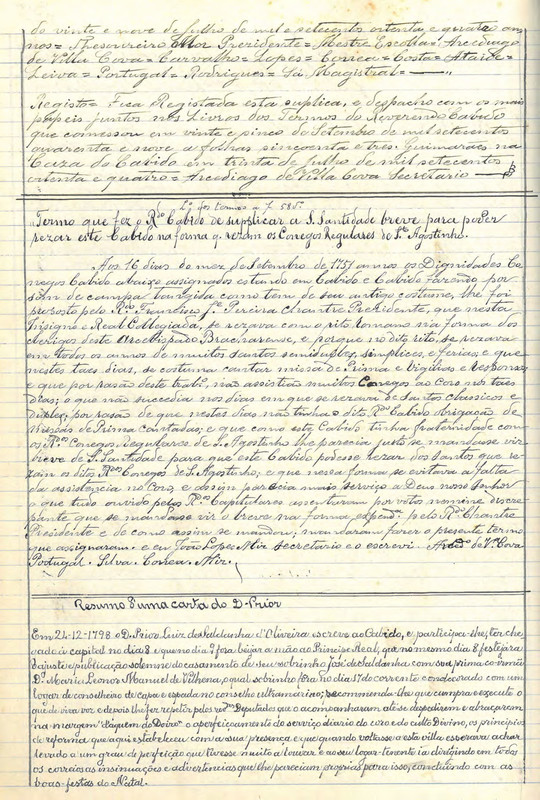 do vinte e nove de julho de mil e setecentos ortenta e quatro an
nos = Thesoureiro Mor Prezidente = Mestre Escolla = Arcediago
de Villa Cova = Carvalho = Lopes = Correa = Costa = Ataide =
Leiva = Portugal = Rodrigues = Sá Magistral =
Registo = Fica Registada esta suplica, e despacho com os mais
papeis juntos nos Livros dos Termos do Reverendo Cabido
que comessou em vinte e sinco de Setembro de mil setecentos
quarenta e nove a folhas sincoenta e tres. Guimarães na
Caza do Cabido em trinta de Julho de mil setecentos
ortenta e quatro = Arcediago de Villa Cova Secretario
Lº dos termos a f. 58
Termo que fez o Rdo Cabido de supplicar a S. Santidade breve para poder
rezar este Cabido na forma q. rezam os Conegos Regulares de Sto Agostinho.
Aos 16 dias do mez de Setembro de 1757 annos os Dignidades Co
negos Cabido abaixo assignados estando em Cabido e Cabido fazendo por
som de campa tangida como tem de seu antigo costume, lhe foi
proposto pelo Rdo Francisco Je Pereira Chantre Prezidente, que nesta
Insigne e Real Collegiada, se rezava com o rito romano na forma dos
clerigos deste Arcebispado Bracharense, e porque no dito rito, se rezava
em todos os annos de muitos santos semiduples, simplices, e ferias, e que
nestes taes dias, se costuma cantar missa de Prima e Vigilias e Responso
e que por rasão deste trabo, não assistião muitos Conegos ao Coro nos taes
dias; o que não succedia nos dias em que se rezava de Santos classicos e
duples; por rasão de que nestes dias não tinha o dito Rdo Cabido obrigação de
Missas de Prima Cantadas; e que como este Cabido tinha fraternidade com
os Rdos Conegos Regulares de S. Agostinho lhe parecia justo se mandasse vir
breve de S. Santidade para que este Cabido podesse rezar dos Santos que re-
zam os ditos Rdos Conegos de S. Agostinho; e que nessa forma se evitava a falta
da assistencia no Coro, e assim parecia mais serviço a Deus nosso Senhor
o que tudo ouvido pelos Rdos Capitulares assentaram por votos nemine discre
pante que se mandasse vir o breve na forma expenda pelo Rdo Chantre
Presidente e de como assim se mandou, mandaram fazer o presente termo
que assignaram. e eu João Lopes Mir secretario e o escrevi. Arcdo de Va Cova
Portugal. Silva. Correa. Mir.
Resumo d'uma carta do D-Prior
Em 24-12-1798 o D. Prior Luiz de Saldanha e Oliveira escreve ao Cabido, e participa-lhe, ter che
gado á capital no dia 8 e que no dia 9 fora beijar a mão ao Principe Real, que no mesmo dia 8 festejára
o ajuste e publicação solemne do casamento de seu sobrinho José de Saldanha com sua prima co-irmão
D. Maria Leonor Manuel de Vilhena, o qual sobrinho fora no dia 17 do corrente condecorado com um
logar de conselheiro de capa e espada no conselho ultramarino; recomenda-lhe que cumpra e execute o
que de viva voz e depois lhe fez repetir pelos revdos Deputados que o acompanharam até se despedirem e abraçarem
na margem d'áquem do Douro o aperfeiçoamento do serviço diario do coro e do culto Divino, os principios
de reforma, que aqui estabeleceu com a sua presença e que quando voltasse a esta villa esperava achar
levado a um grau de perfeição que tivesse muito a louvar, e ao seu logar-tenente ia dirigindo em todos
os correios as insinuações e advertencias que lhe pareciam proprias para isso, concluindo com as
boas-festas do Natal.